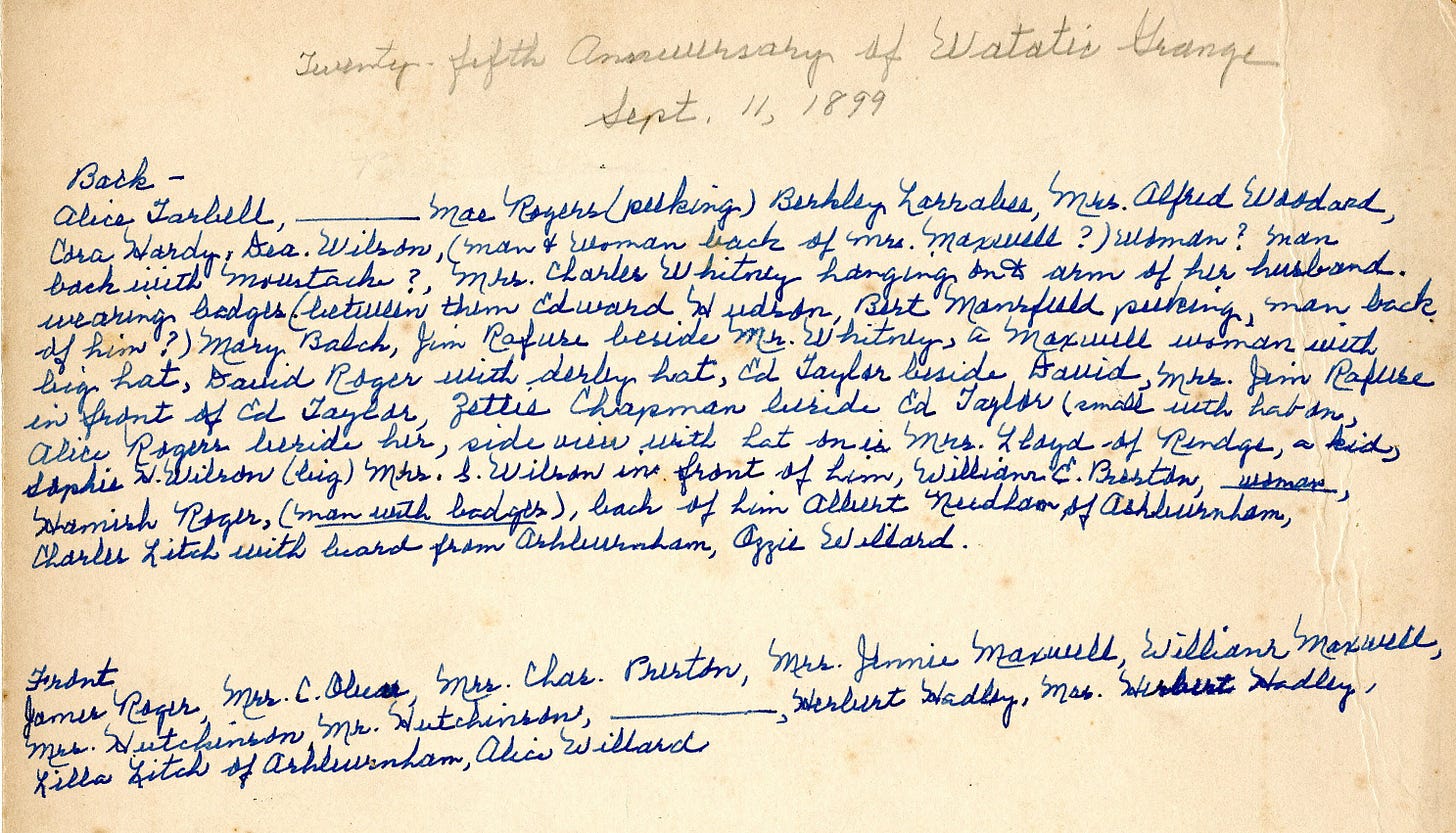 Twenty-fifth Anniversary of Watatic Grange
Sept. 11, 1899
Back -
Alice Tarbell, ______ Mae Rogers (peeking) Berkley Larrabee, Mrs. Alfred Woodard,
Cora Hardy, Dea. Wilson, (man & woman back of Mrs. Maxwell ?) woman ? man
back with moustache ?, Mrs. Charles Whitney hanging on arm of her husband.
wearing badges (between them Edward Hudson, Bert Mansfield peeking, man back
of him ?) Mary Balch, Jim Rafuse beside Mr. Whitney, a Maxwell woman with
big hat, David Roger with derby hat, Ed Taylor beside David, Mrs. Jim Rafuse
in front of Ed Taylor, Zettie Chapman beside Ed Taylor (small with hat on,
Alice Rogers beside her, side view with hat on is Mrs. Lloyd of Rindge, a kid,
Sophie W. Wilson (big) Mrs. S. Wilson in front of him, William E. Preston, woman,
Hamish Roger, (man with badges), back of him Albert Needham of Ashburnham,
Charles Litch with beard from Ashburnham, Ozzie Willard.
Front
James Roger, Mrs. C. Mrs. Chas. Preston, Mrs. Jennie Maxwell, William Maxwell,
Mrs. Hutchinson, Mr. Hutchinson, ______, Herbert Hadley, Mrs. Herbert Hadley,
Lilla Litch of Ashburnham, Alice Willard